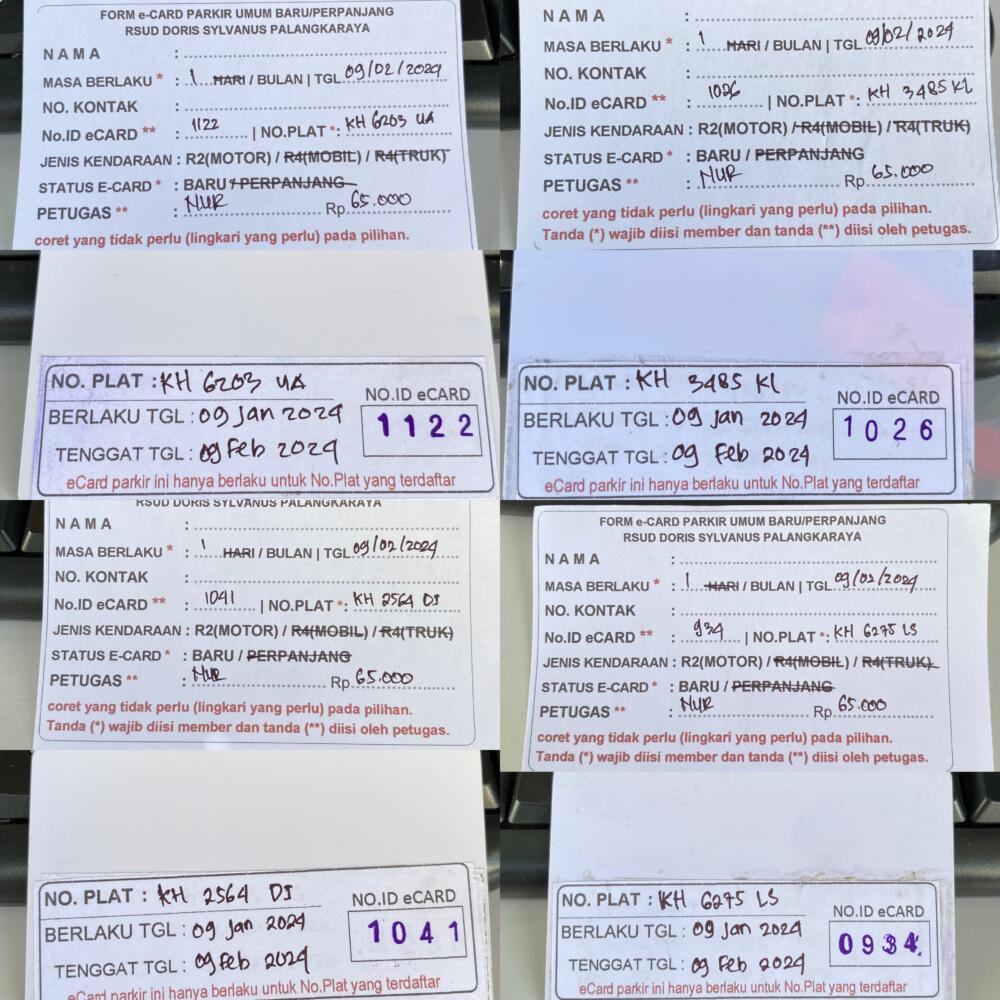 FORM e-CARD PARKIR UMUM BARU/PERPANJANG
RSUD DORIS SYLVANUS PALANGKARAYA
N A M A :
MASA BERLAKU * : 1 HARI / BULAN | TGL 09/02/2024
NO. KONTAK :
No.ID eCARD ** : 1122 | NO.PLAT *: KH 6203 UA
JENIS KENDARAAN : R2(MOTOR) / R4(MOBIL) / R4(TRUK)
STATUS E-CARD * : BARU / PERPANJANG
PETUGAS ** : NUR Rp. 65.000
coret yang tidak perlu (lingkari yang perlu) pada pilihan.
N A M A :
MASA BERLAKU * : 1 HARI / BULAN | TGL 09/02/2024
NO. KONTAK :
No.ID eCARD ** : 1026 | NO.PLAT *: KH 3485 KL
JENIS KENDARAAN : R2(MOTOR) / R4(MOBIL) / R4(TRUK)
STATUS E-CARD * : BARU / PERPANJANG
PETUGAS ** : NUR Rp. 65.000
coret yang tidak perlu (lingkari yang perlu) pada pilihan.
Tanda (*) wajib diisi member dan tanda (**) diisi oleh petugas.
NO. PLAT : KH 6203 UA
BERLAKU TGL : 09 Jan 2024
TENGGAT TGL : 09 Feb 2024
NO.ID eCARD
1122
eCard parkir ini hanya berlaku untuk No.Plat yang terdaftar
NO. PLAT : KH 3485 KL
BERLAKU TGL : 09 Jan 2024
TENGGAT TGL : 09 Feb 2024
NO.ID eCARD
1026
eCard parkir ini hanya berlaku untuk No.Plat yang terdaftar
RSUD DORIS SYLVANUS PALANGKARAYA
N A M A :
MASA BERLAKU * : 1 HARI / BULAN | TGL 09/02/2024
NO. KONTAK :
No.ID eCARD ** : 1041 | NO.PLAT *: KH 2564 DJ
JENIS KENDARAAN : R2(MOTOR) / R4(MOBIL) / R4(TRUK)
STATUS E-CARD * : BARU / PERPANJANG
PETUGAS ** : NUR Rp. 65.000
coret yang tidak perlu (lingkari yang perlu) pada pilihan.
Tanda (*) wajib diisi member dan tanda (**) diisi oleh petugas.
FORM e-CARD PARKIR UMUM BARU/PERPANJANG
RSUD DORIS SYLVANUS PALANGKARAYA
N A M A :
MASA BERLAKU * : 1 HARI / BULAN | TGL 09/02/2024
NO. KONTAK :
No.ID eCARD ** : 934 | NO.PLAT *: KH 6275 LS
JENIS KENDARAAN : R2(MOTOR) / R4(MOBIL) / R4(TRUK)
STATUS E-CARD * : BARU / PERPANJANG
PETUGAS ** : NUR Rp. 65.000
coret yang tidak perlu (lingkari yang perlu) pada pilihan.
Tanda (*) wajib diisi member dan tanda (**) diisi oleh petugas.
NO. PLAT : KH 2564 DJ
BERLAKU TGL : 09 Jan 2024
TENGGAT TGL : 09 Feb 2024
NO.ID eCARD
1041
eCard parkir ini hanya berlaku untuk No.Plat yang terdaftar
NO. PLAT : KH 6275 LS
BERLAKU TGL : 09 Jan 2024
TENGGAT TGL : 09 Feb 2024
NO.ID eCARD
0934
eCard parkir ini hanya berlaku untuk No.Plat yang terdaftar